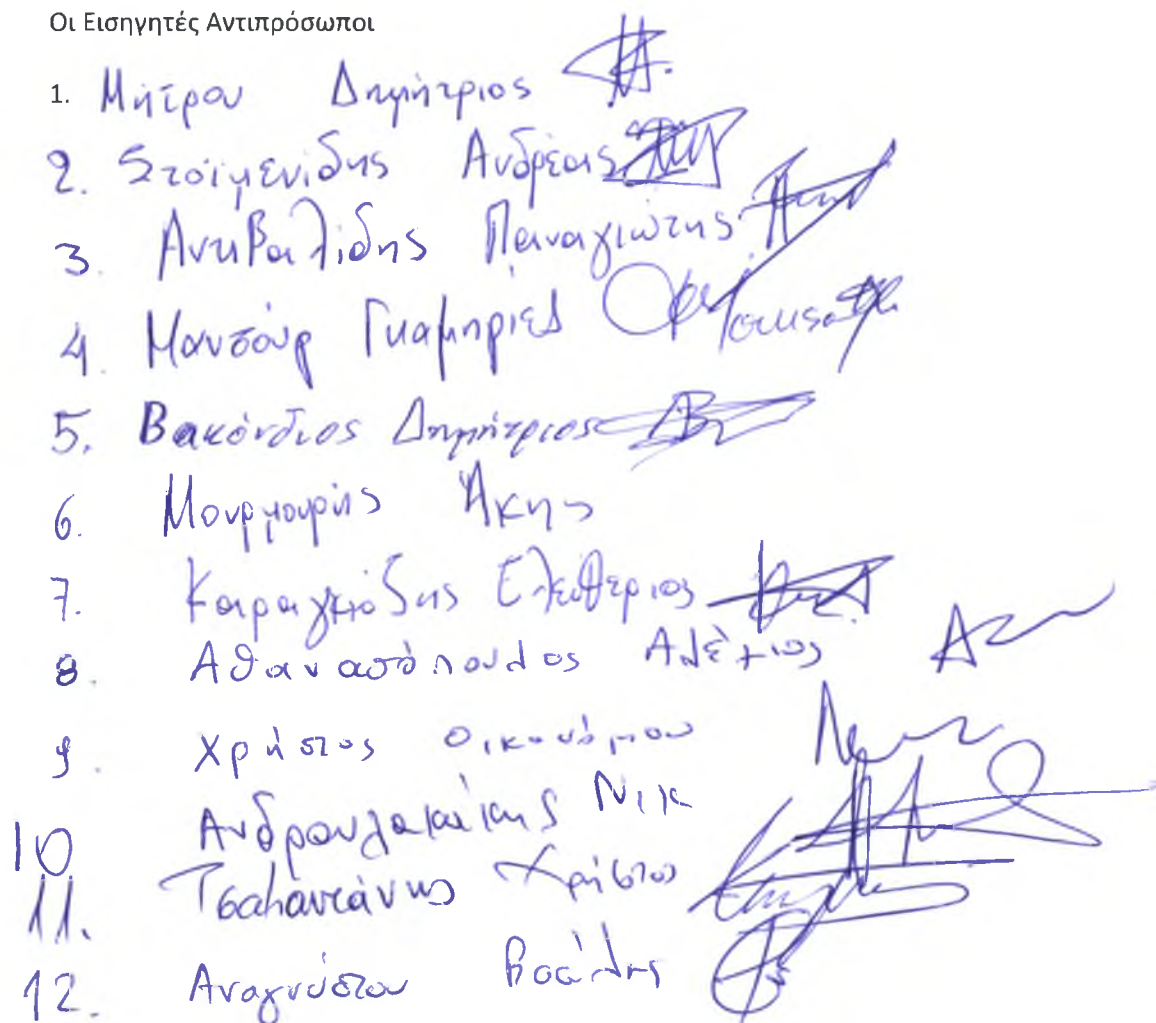 Οι Εισηγητές Αντιπρόσωποι
1. Μήτρου Δημήτριος
2. Στοϊμενίδης Ανδρέας
3. Αντιβαλίδης Παναγιώτης
4. Μανσούρ Γκαμπριέλ
5. Βακόνδιος Δημήτριος
6. Μουρμουρής Άκης
7. Καραγκιόζης Ελευθέριος
8. Αθανασόπουλος Αλέξιος
9. Χρήστος Οικονόμου
10 Ανδρουλακάκης Νικ
11. Τσαπαντάνης Χρήστος
12. Αναγνώστου Βασίλης